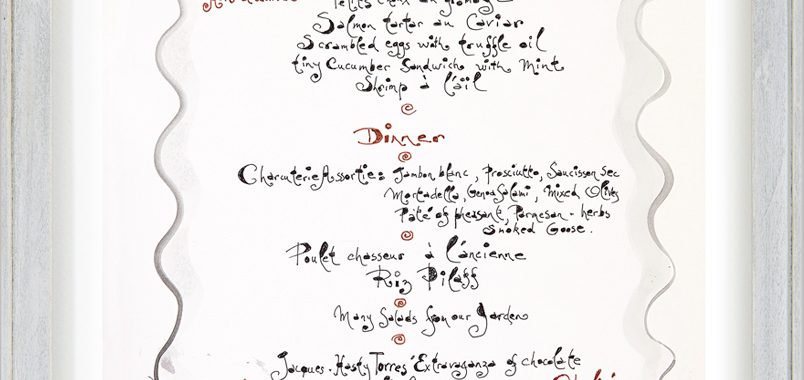 Petits choux au fromage
Salmon tartar au Caviar
Scrambled eggs with truffle oil
tiny Cucumber Sandwich with Mint
Shrimp à l'äil
Dinner
Charcuterie Assortie: Jambon blanc, Prosciutto, Saucisson Sec
Mortadella, Genoa Salami, Mixed Olives
Pâté of pheasant, Parmesan - herbs
Smoked Goose.
Poulet chasseur à l'áncienne
Riz Pilaff
Many Salads from our Garden
Jacques - Hasty Torres' Extravaganza of chocolate